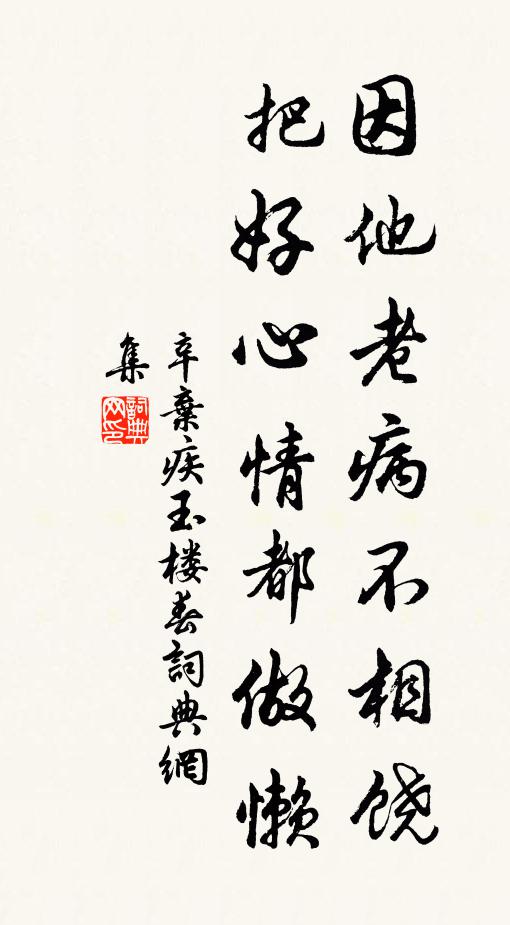 因他老病不相饶
把好心情都做懒
辛棄疾玉楼春詞典網
集
詞典
网印